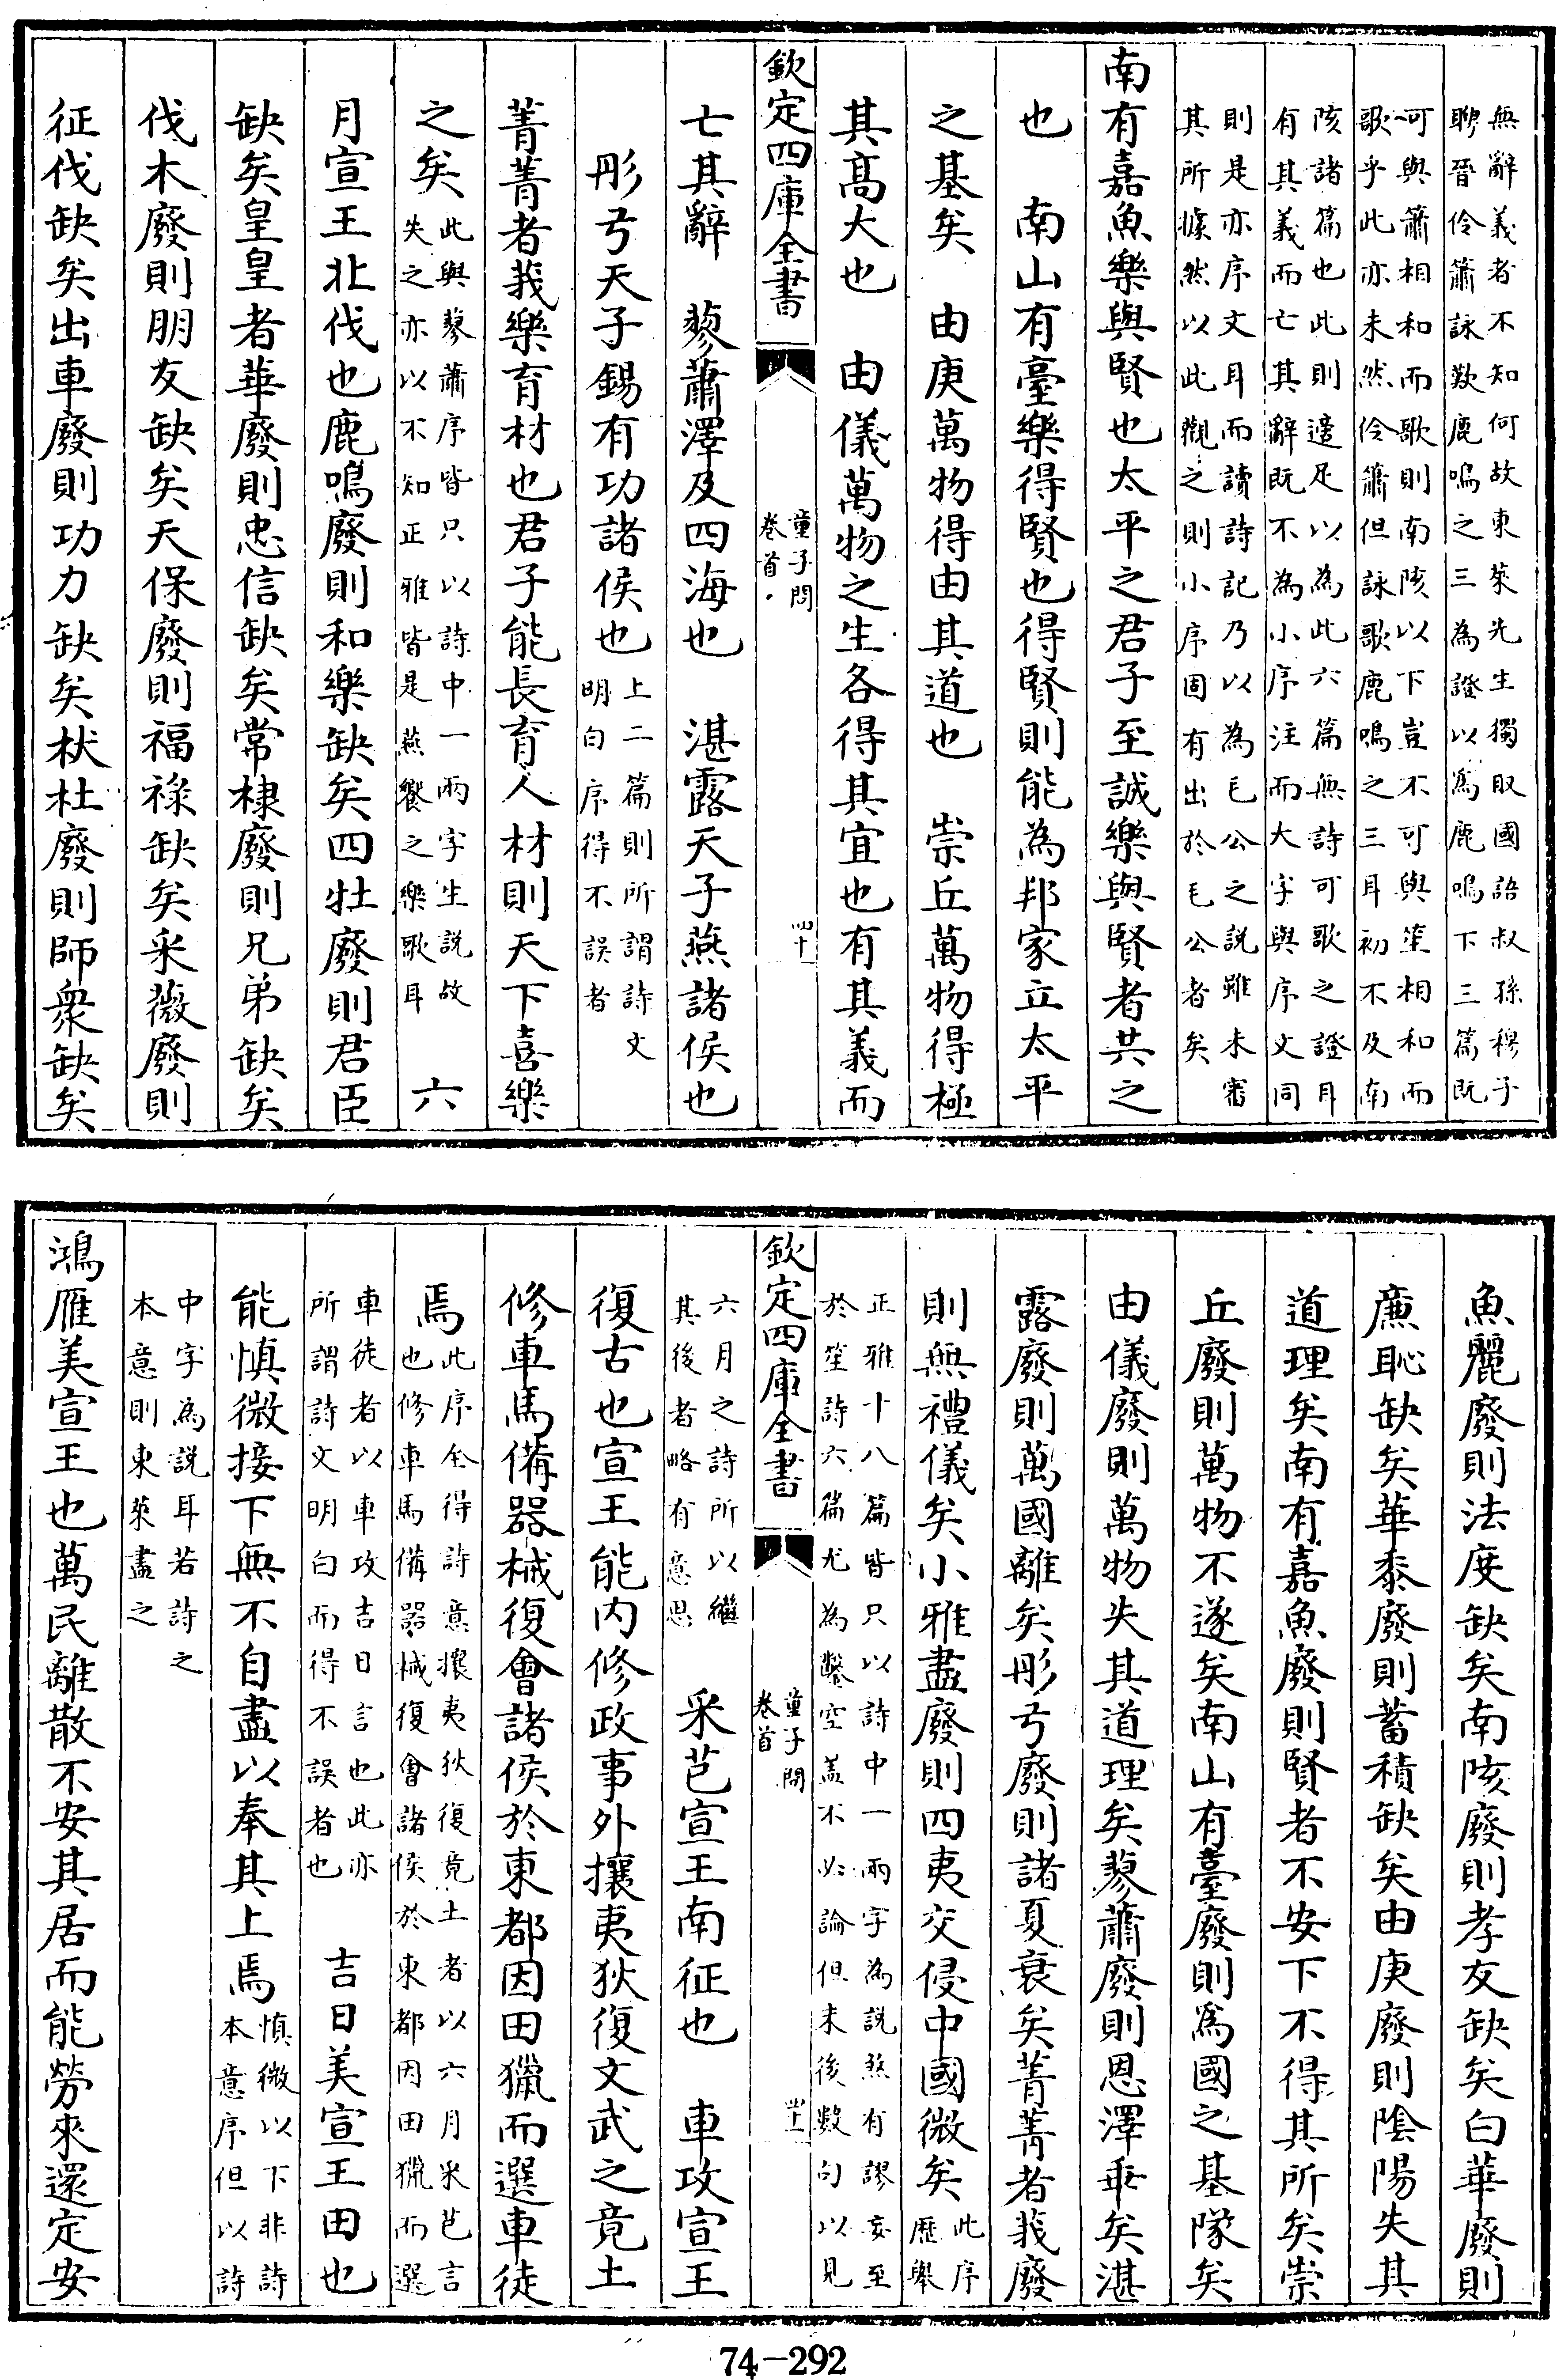 無辭義者不知何故東萊先生獨取國語叔孫穆子
聘晉伶簫詠歎鹿鳴之三為證以爲鹿鳴下三篇既
可與簫相和而歌則南陔以下豈不可與笙相和而
歌乎此亦未然伶簫但詠歌鹿鳴之三耳初不及南
陔諸篇也此則遽足以為此六篇無詩可歌之證耳
有其義而亡其辭既不為小序注而大字與序文同
則是亦序文耳而讀詩記乃以為毛公之説雖未審
其所據然以此觀之則小序固有出於毛公者矣
南有嘉魚樂與賢也太平之君子至誠樂與賢者共之
也　南山有臺樂得賢也得賢則能為邦家立太平
之基矣　由庚萬物得由其道也　崇丘萬物得極
其髙大也　由儀萬物之生各得其宜也有其義而
欽定四庫全書
童子問
卷首
四十
亡其辭　蓼蕭澤及四海也　湛露天子燕諸侯也
彤弓天子錫有功諸侯也
上二篇則所謂詩文
明白序得不誤者
菁菁者莪樂育材也君子能長育人材則天下喜樂
之矣
此與蓼蕭序皆只以詩中一兩字生説故
失之亦以不知正雅皆是燕饗之樂歌耳
六
月宣王北伐也鹿鳴廢則和樂缺矣四牡廢則君臣
缺矣皇皇者華廢則忠信缺矣常棣廢則兄弟缺矣
伐木廢則朋友缺矣天保廢則福祿缺矣采薇廢則
征伐缺矣出車廢則功力缺矣杕杜廢則師衆缺矣
魚麗廢則法度缺矣南陔廢則孝友缺矣白華廢則
廉恥缺矣華黍廢則蓄積缺矣由庚廢則陰陽失其
道理矣南有嘉魚廢則賢者不安下不得其所矣崇
丘廢則萬物不遂矣南山有臺廢則爲國之基隊矣
由儀廢則萬物失其道理矣蓼蕭廢則恩澤乖矣湛
露廢則萬國離矣彤弓廢則諸夏衰矣菁菁者莪廢
則無禮儀矣小雅盡廢則四夷交侵中國微矣
此序
歷舉
正雅十八篇皆只以詩中一兩字為説煞有謬妄至
於笙詩六篇尤為鑿空盖不必論但末後數句以見
欽定四庫全書
童子問
卷首
四十一
六月之詩所以繼
其後者略有意思
采芑宣王南征也　車攻宣王
復古也宣王能内修政事外攘夷狄復文武之竟土
修車馬備器械復會諸侯於東都因田獵而選車徒
焉
此序全得詩意攘夷狄復竟土者以六月采芑言
也修車馬備器械復會諸侯於東都因田獵而選
車徒者以車攻吉日言也此亦
所謂詩文明白而得不誤者也
吉日美宣王田也
能慎微接下無不自盡以奉其上焉
慎微以下非詩
本意序但以詩
中字為説耳若詩之
本意則東萊盡之
鴻雁美宣王也萬民離散不安其居而能勞來還定安
74-292